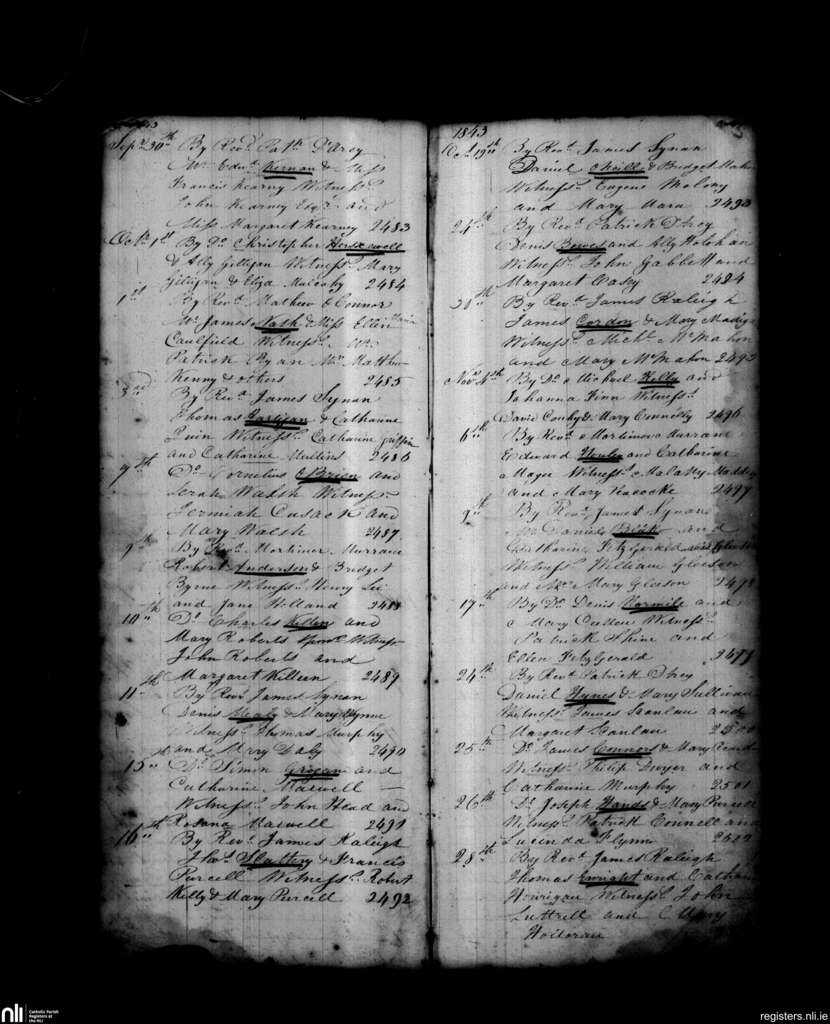 1843
Sept. 30th By Revd. Patk. D'Arcy
Mr. Edwd. Kiernan & Miss
Francis Kearny Witness.
John Kearney Esqr. and
Miss Margaret Kearney 2483
Octr. 1st By Do. Christopher
& Ally Gilligan Witness. Mary
Gilligan & Eliza Mulcahy 2484
1st By Revd. Mathew O Connor
Mr. James Nash & Miss Ellen Maria
Caulfield Witness. Wm.
Patrick Ryan Mr. Matthew
Kenny & others 2485
3rd By Revd. James Synan
Thomas & Catharine
Quin Witness. Catharine Griffin
and Catharine Mullins 2486
7th Do. Cornelius OBrien and
Sarah Walsh Witness.
Jermiah Cusack and
Mary Walsh 2487
9th By Revd. Mortimer Murrane
Robert Anderson & Bridget
Byrne Witness. Henry Lee
and Jane Holland 2488
10th Do. Charles Killen and
Mary Roberts Witness
John Roberts and
Margaret Killeen 2489
11th By Revd. James Synan
Denis Healy & Mary Flynne
Witness. Thomas Murphy
and Mary Daly 2490
15th Do. Simon Grogan and
Catharine Maxwell —
Witness. John Head and
Rosana Maxwell 2491
16th By Revd. James Raleigh
Thos. Slattery & Francis
Purcell Witness. Robert
Kelly & Mary Purcell 2492
1843
Octr. 19th By Revd. James Synan
Daniel Neill & Bridget
Witness. Eugene Molony
and Mary Mara 2493
24th By Revd. Patrick D'Arcy
Denis Bowes and Ally Holohan
Witness. John Gabbett and
Margaret Casey 2494
30th By Revd. James Raleigh
James Cordon & Mary Madigan
Witness. Michl. McMahon
and Mary McMahon 2495
Novr. 4th By Do. Michael Kelly and
Johanna Finn Witness.
David Conby & Mary Connelly 2496
6th By Revd. Mortimer Murrane
Edward and Catharine
Magee Witness. Malachy Madden
and Mary Peacocke 2497
9th By Revd. James Synan
Mr. Daniel and
Catharine FitzGerald
Witness. William Gleeson
and Mrs. Mary Gleeson 2498
17th By Do. Denis Normile and
Mary Cullen Witness.
Patrick Shine and
Ellen FitzGerald 2499
24th By Revd. Patrick D'Arcy
Daniel Hynes & Mary Sullivan
Witness. James Scanlan and
Margaret Scanlan 2500
25th Do. James Connors & Mary
Witness. Philip Dwyer and
Catharine Murphy 2501
26th Do. Joseph Hands & Mary Purcell
Witness. Patrick Connell and
Lucinda Flynn 2502
28th By Revd. James Raleigh
Thomas Enright and Catharine
Hourigan Witness. John
Luttrell and Mary
Holloran
nli
Catholic Parish
Registers at
the NLI
registers.nli.ie